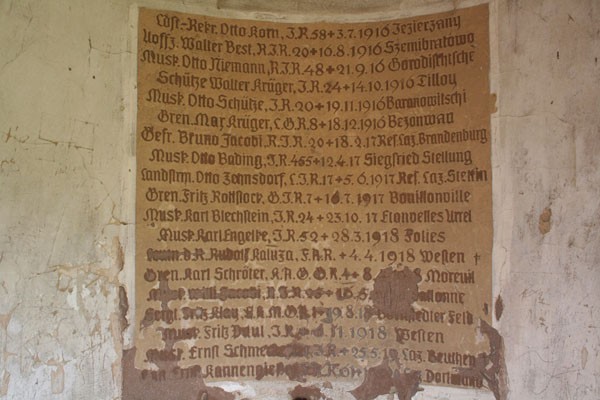 Ldst.-Rekr. Otto Korn, I.R.58 + 3.7.1916 Jezierzany
Uoffz. Walter Best, R.I.R.20 + 16.8.1916 Szemibratowo
Musk. Otto Niemann, R.I.R.48 + 21.9.16 Goroditschtsche
Schütze Walter Krüger, I.R.24 + 14.10.1916 Tilloy
Musk. Otto Schütze, I.R.20 + 19.11.1916 Baranowitschi
Gren. Max Krüger, L.G.R.8 + 18.12.1916 Bezonvau
Gefr. Bruno Jacobi, R.I.R.20 + 18.2.17 Res. Laz. Brandenburg
Musk. Otto Bading, I.R.465 + 12.4.17 Siegfried Stellung
Landstrm. Otto Zahnsdorf, L.I.R.17 + 5.6.1917 Res. Laz. Stettin
Gren. Fritz Rottstock, G.I.R.7 + 16.7.1917 Bouillonville
Musk. Karl Blechstein, I.R.24 + 23.10.17
Musk. Karl Engelke, I.R.52 + 28.3.1918 Folies
Rudolf Kaluza, F.A.R. + 4.4.1918 Westen +
Gren. Karl Schröter, K.A.G.G.R.4 + 8. 1918 Moreuil
Musk. Willi Jacobi, R.I.R.
Fritz 19.8.18 Feld
Musk. Fritz Paul, I.R. 11.1918 Westen
Musk. Ernst I.R. + 25.5.19 Laz. Beuthen
Ernst Laz. Dortmund